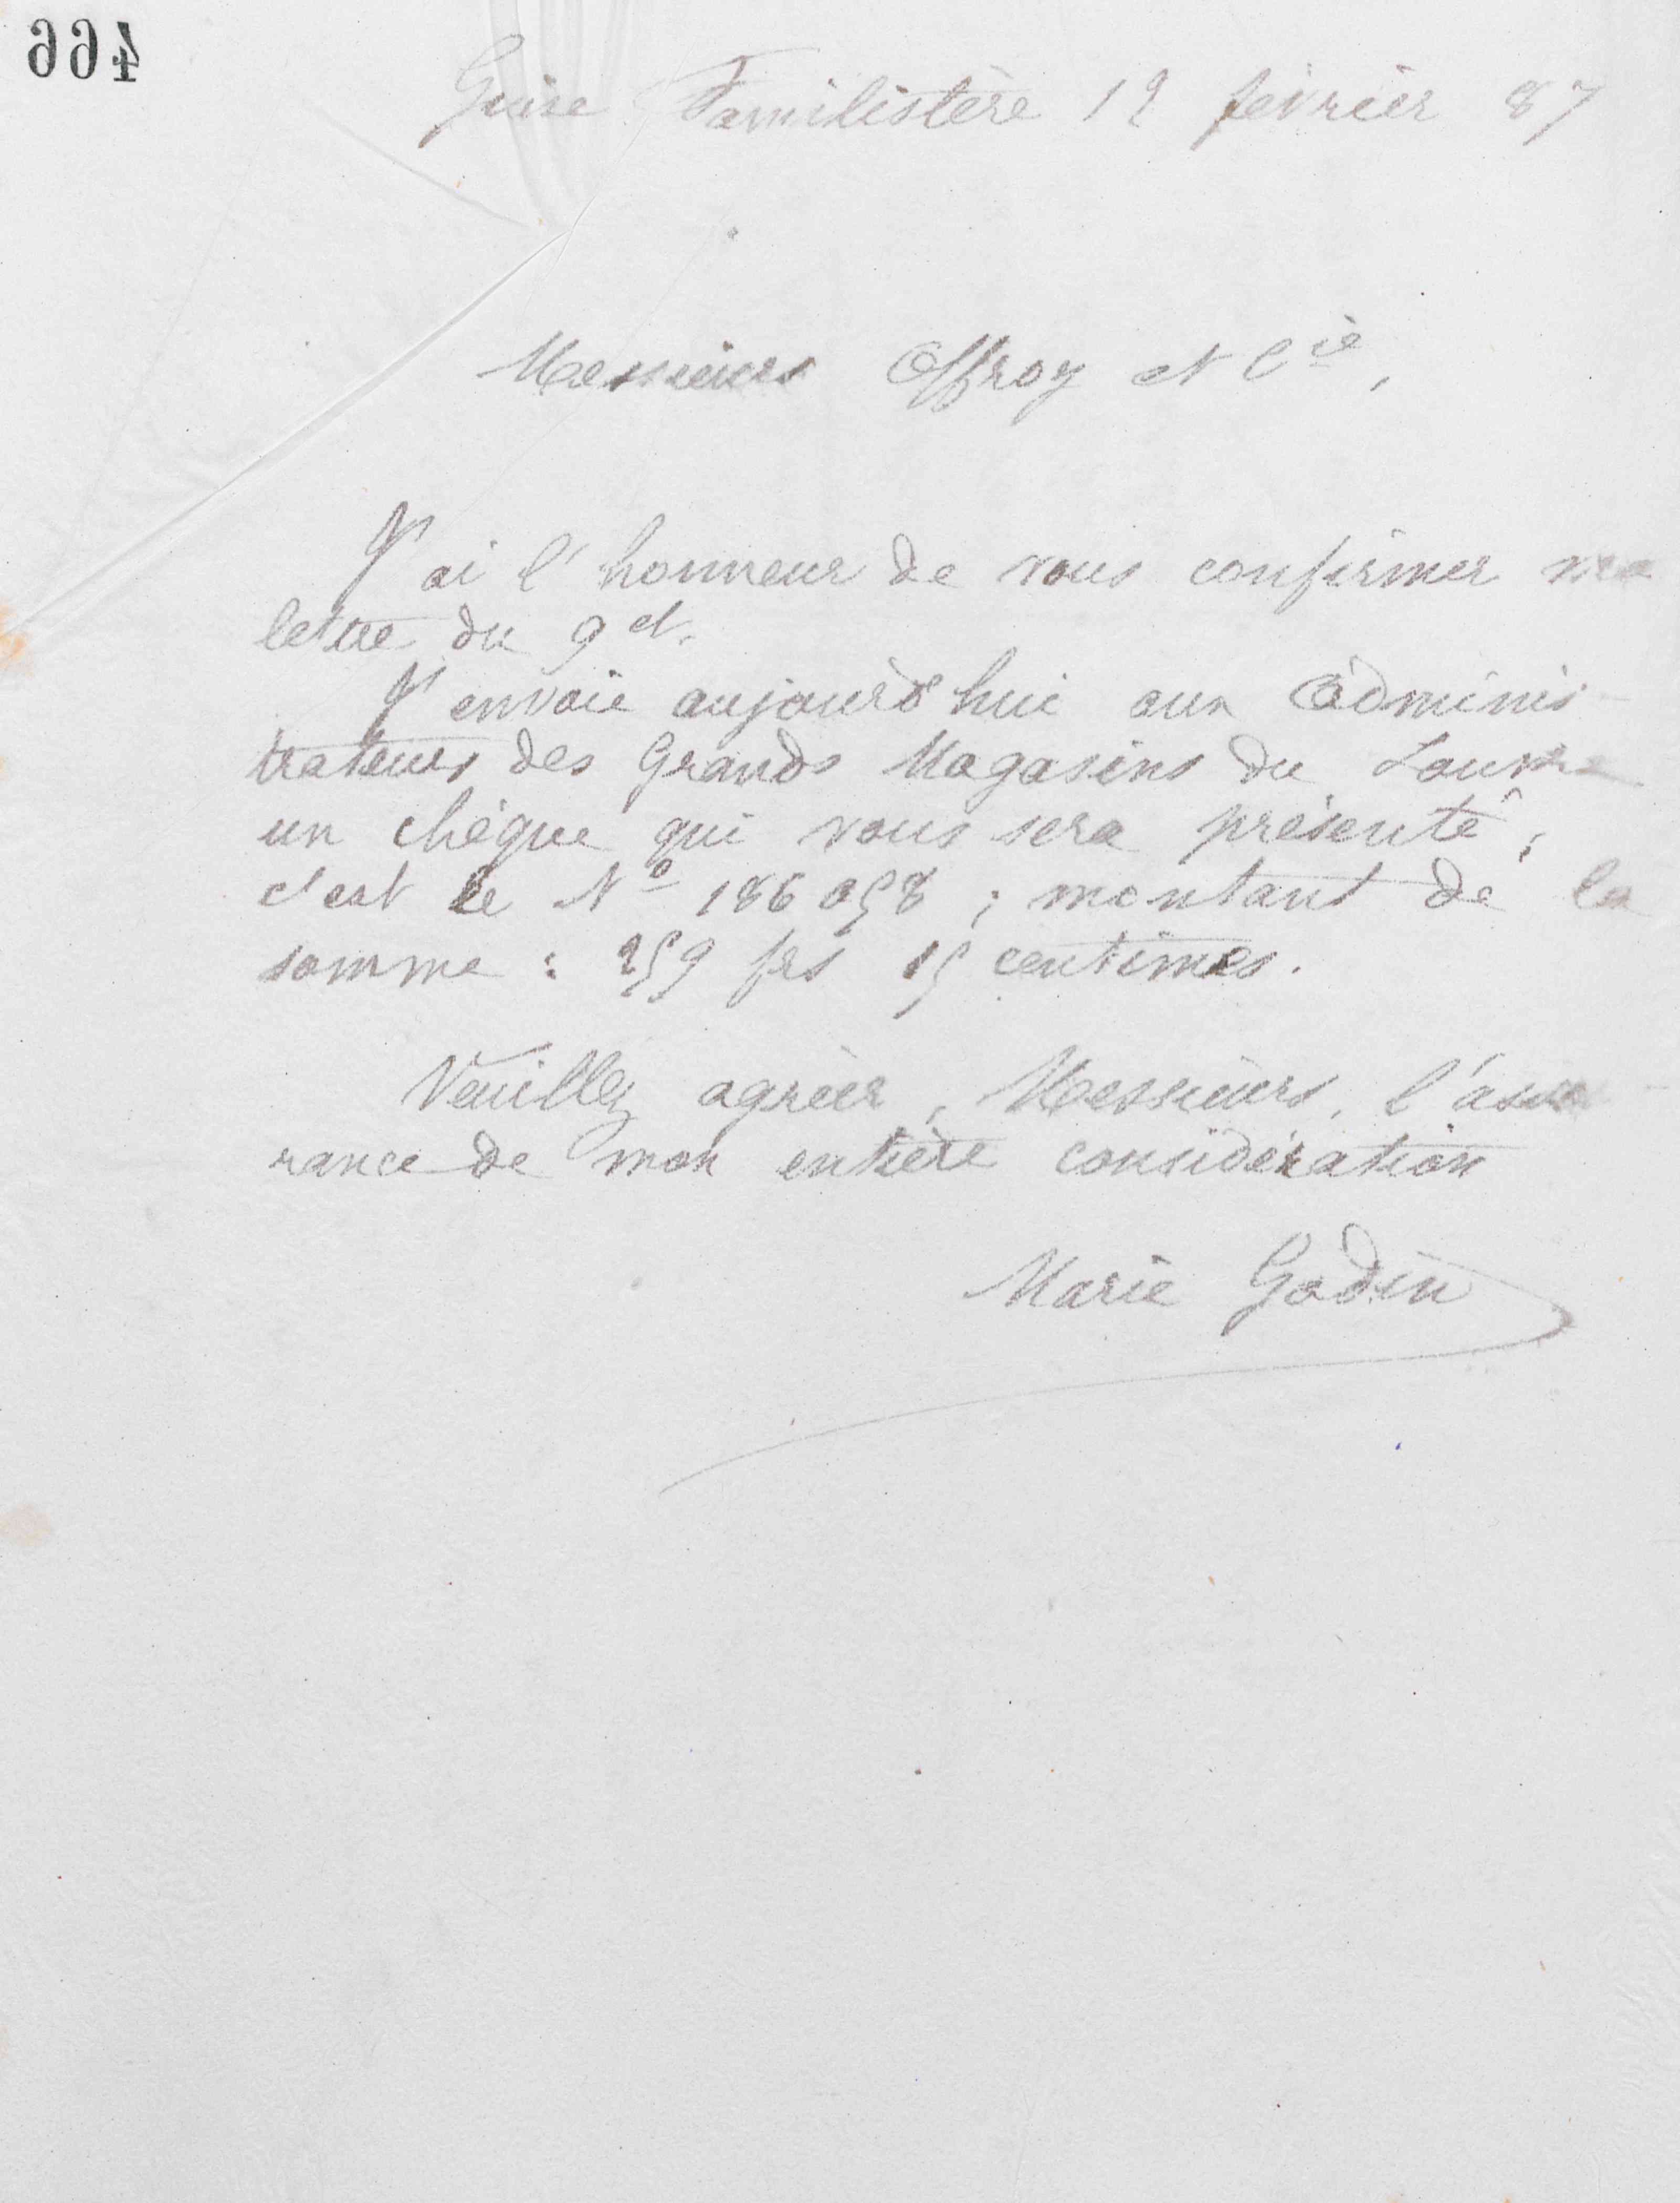 466
Guise Familistère 12 février 87
Messieurs Offroy et Cie,
J'ai l'honneur de vous confirmer ma
lettre du 9 ct.
J'envoie aujourd'hui aux Adminis
trateurs des Grands Magasins du Louvre
un chèque qui vous sera présenté ;
c'est le No 186 058 ; montant de la
somme : 259 frs 15 centimes.
Veuillez agréer, Messieurs, l'assu
rance de mon entière considération
Marie Godin